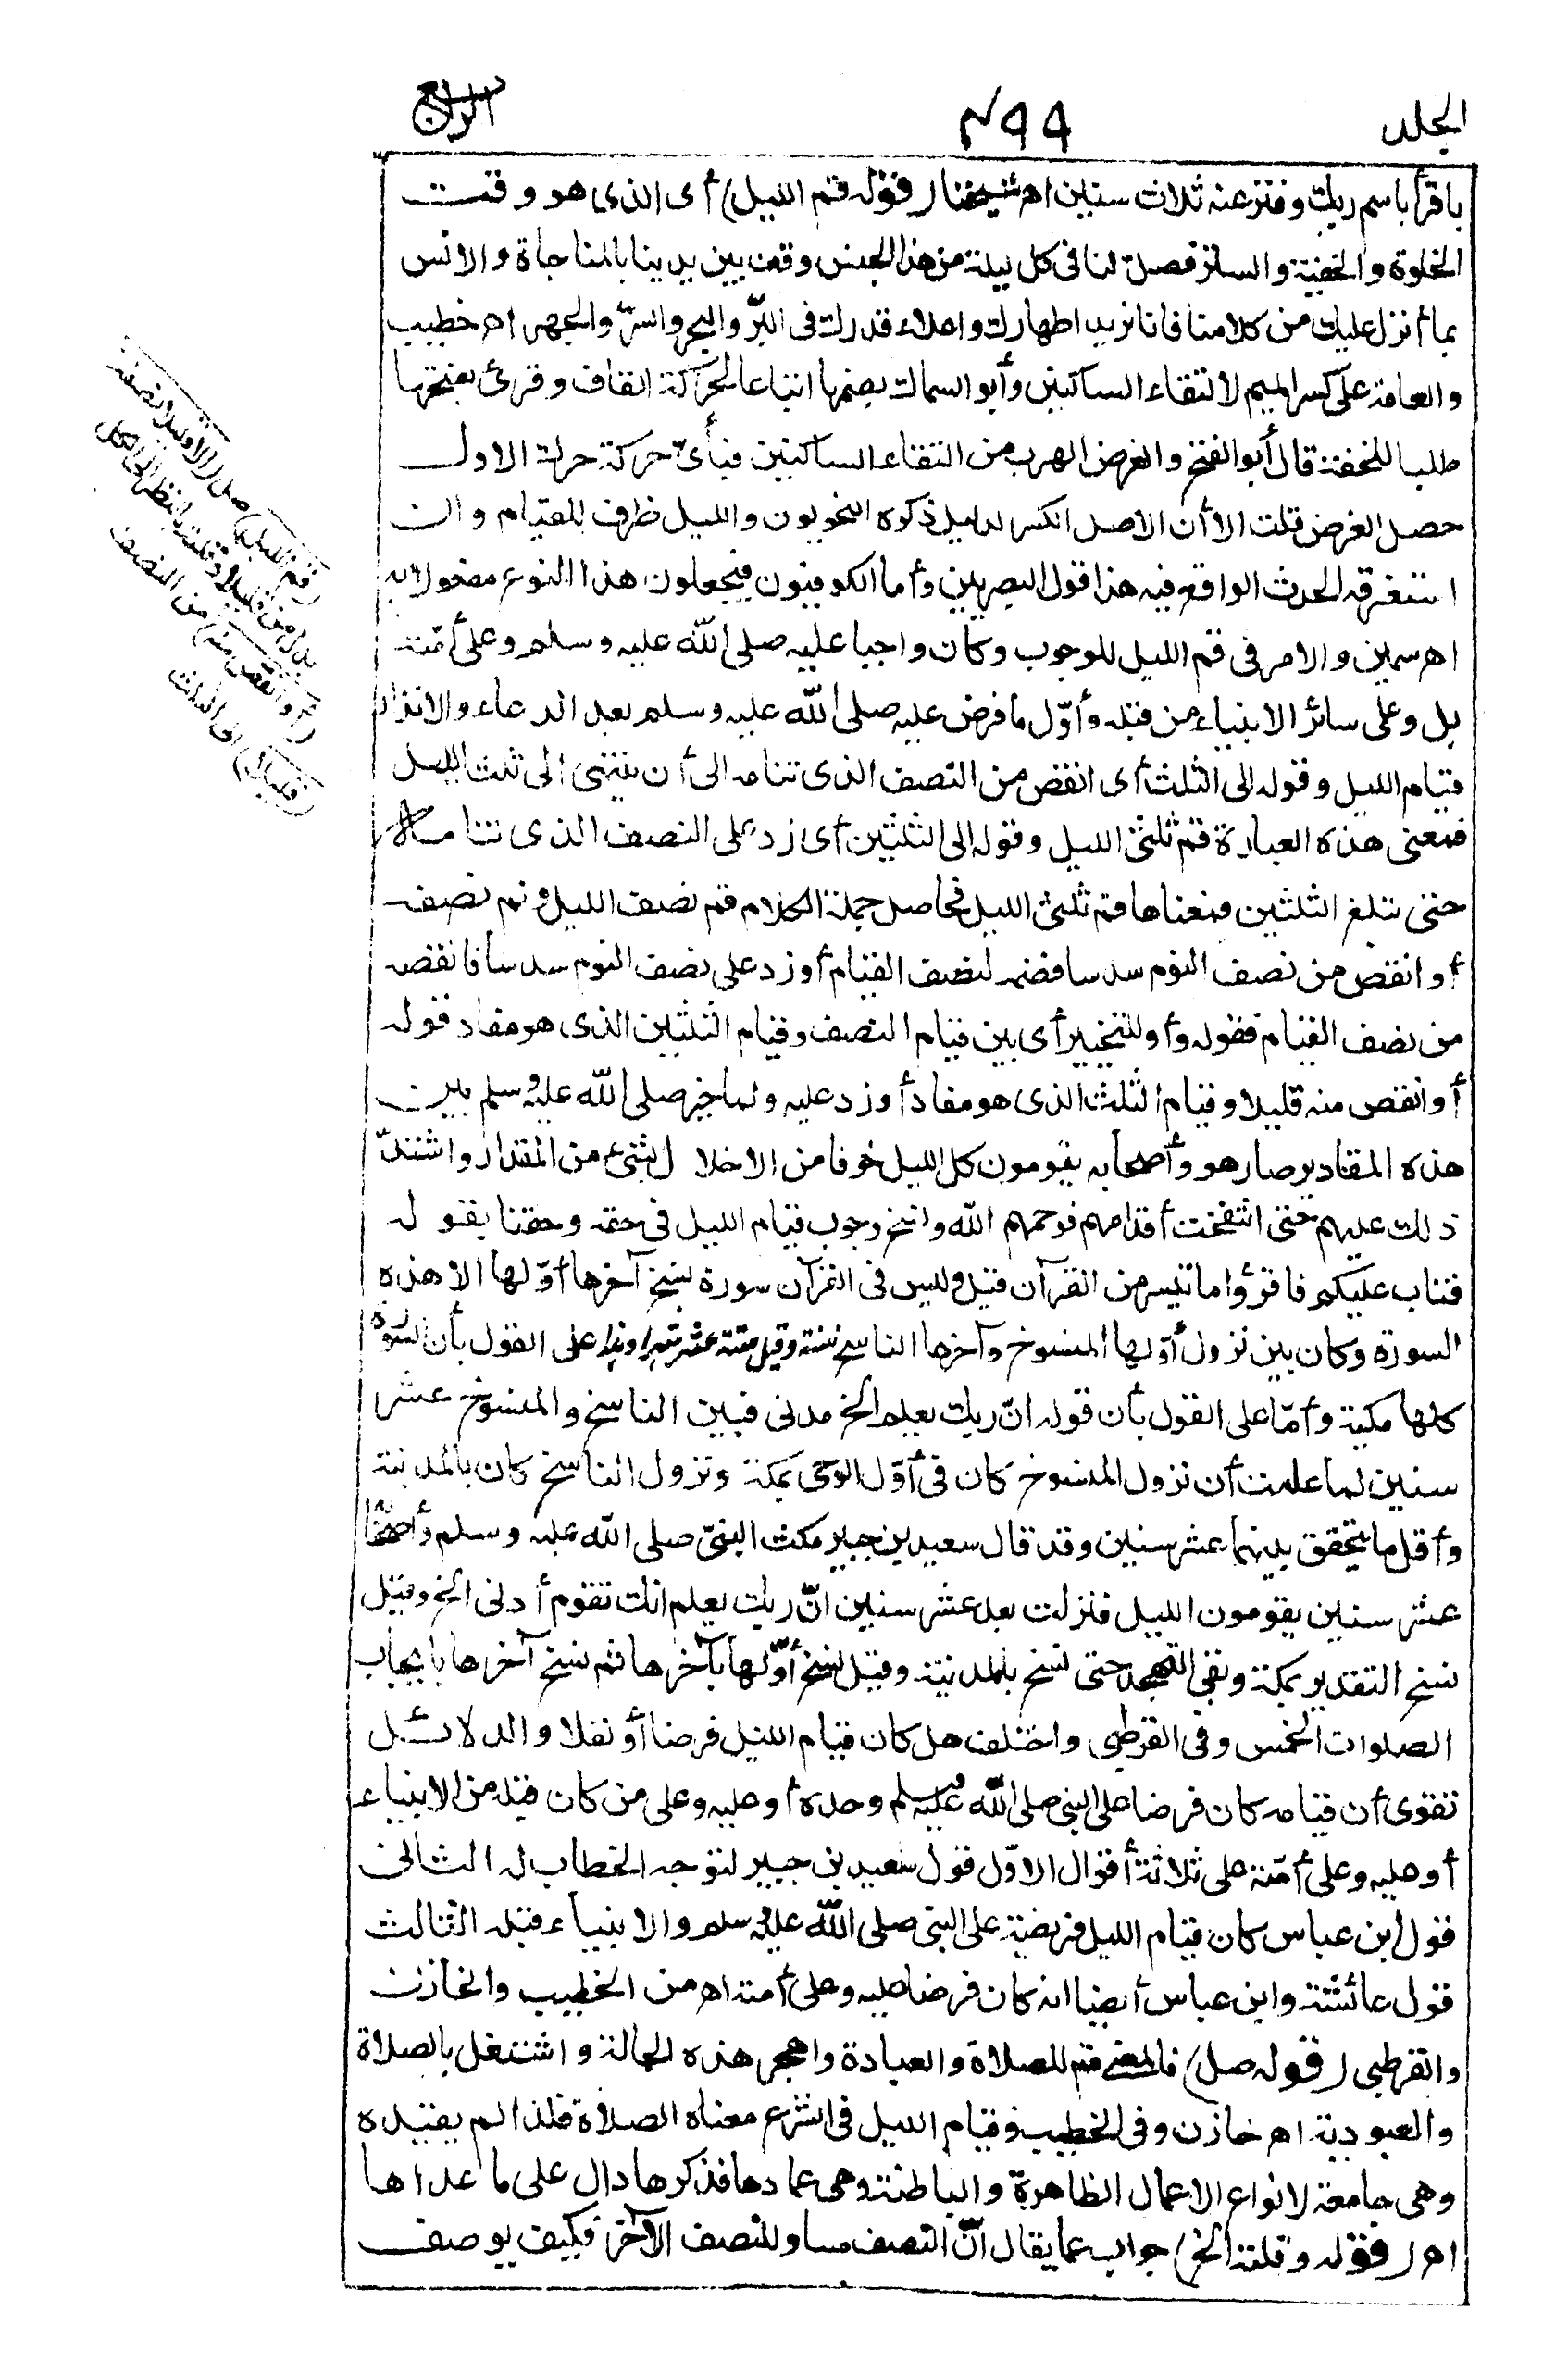 الجلد ٤٩٩ الرابع
باقرأ باسم ربك وفتر عنه ثلاث سنين اه شيخنا (قوله قم الليل) أى الذى هو وقت
الخلوة والخفية والستر فصل لنا فى كل ليلة من هذا الجنس وقف بين يدينا بالمناجاة والانس
بما أنزل عليك من كلامنا فانا نريد اظهارك واعلاء قدرك فى البرّ والبحر والسرّ والجهر اه خطيب
والعامة على كسر الميم لالتقاء الساكنين وأبو السماك بضمها اتباعا لحركة القاف وقرئ بفتحها
طلبا للخفة قال أبو الفتح والغرض الهرب من التقاء الساكنين فبأىّ حركة حرك الاول
حصل الغرض قلت الا أن الاصل الكسر لدليل ذكره النحويون والليل ظرف للقيام وان
استغرقه الحدث الواقع فيه هذا قول البصريين وأما الكوفيون فيجعلون هذا النوع مفعولا به
اه سمين والامر فى قم الليل للوجوب وكان واجبا عليه صلى الله عليه وسلم وعلى أمّته
بل وعلى سائر الانبياء من قبله وأوّل ما فرض عليه صلى الله عليه وسلم بعد الدعاء والانذار
قيام الليل وقوله الى الثلث أى انقص من النصف الذى تنامه الى أن ينتهى الى ثلث الليل
فمعنى هذه العبارة قم ثلثى الليل وقوله الى الثلثين أى زد على النصف الذى تنامه
حتى تبلغ الثلثين فمعناها قم ثلث الليل فحاصل جملة الكلام قم نصف الليل ونم نصفه
أو انقص من نصف النوم سدسا فضمه لنصف القيام أو زد على نصف النوم سدسا فانقصه
من نصف القيام فقوله وأو للتخيير أى بين قيام النصف وقيام الثلثين الذى هو مفاد قوله
أو انقص منه قليلا وقيام الثلث الذى هو مفاد أو زد عليه ولما خير صلى الله عليه وسلم بين
هذه المقادير صار هو وأصحابه يقومون كل الليل خوفا من الاخلال بشئ من المقدار واشتدّ
ذلك عليهم حتى انتفخت أقدامهم فرحمهم الله ونسخ وجوب قيام الليل فى حقه وحقنا بقوله
فتاب عليكم فاقرؤا ما تيسر من القرآن قيل وليس فى القرآن سورة نسخ آخرها أوّلها الا هذه
السورة وكان بين نزول أوّلها المنسوخ وآخرها الناسخ سنة وقيل ستة عشر شهرا وهذا على القول بأن السورة
كلها مكية وأمّا على القول بأن قوله انّ ربك يعلم الخ مدنى فبين الناسخ والمنسوخ عشر
سنين لما علمت أن نزول المنسوخ كان فى أوّل الوحى بمكة ونزول الناسخ كان بالمدينة
وأقل ما يتحقق بينهما عشر سنين وقد قال سعيد بن جبير مكث النبىّ صلى الله عليه وسلم وأصحابه
عشر سنين يقومون الليل فنزلت بعد عشر سنين انّ ربك يعلم انك تقوم أدنى الخ وقيل
نسخ التقدير بمكة وبقى التهجد حتى نسخ بالمدينة وقيل نسخ أوّلها بآخرها ثم نسخ آخرها بايجاب
الصلوات الخمس وفى القرطبى واختلف هل كان قيام الليل فرضا أو نفلا والدلائل
تقوى أن قيامه كان فرضا على النبى صلى الله عليه وسلم وحده أو عليه وعلى من كان قبله من الانبياء
أو عليه وعلى أمّته على ثلاثة أقوال الاوّل قول سعيد بن جبير لتوجه الخطاب له الثانى
قول ابن عباس كان قيام الليل فريضة على النبى صلى الله عليه وسلم والانبياء قبله الثالث
قول عائشة وابن عباس أيضا انه كان فرضا عليه وعلى أمته اه من الخطيب والخازن
والقرطبى (قوله صل) فالمعنى قم للصلاة والعبادة واهجر هذه الحالة واشتغل بالصلاة
والعبودية اه خازن وفى الخطيب وقيام الليل فى الشرع معناه الصلاة فلذا لم يقيده
وهى جامعة لانواع الاعمال الظاهرة والباطنة وهى عمادها فذكرها دال على ما عداها
اه (قوله وقلته الخ) جواب عما يقال انّ النصف مساو للنصف الآخر فكيف يوصف
(قم الليل) صل (الا قليلا نصفه)
بدل من قليلا وقلته بالنظر الى الكل
(أو انقص منه) من النصف
(قليلا) الى الثلث